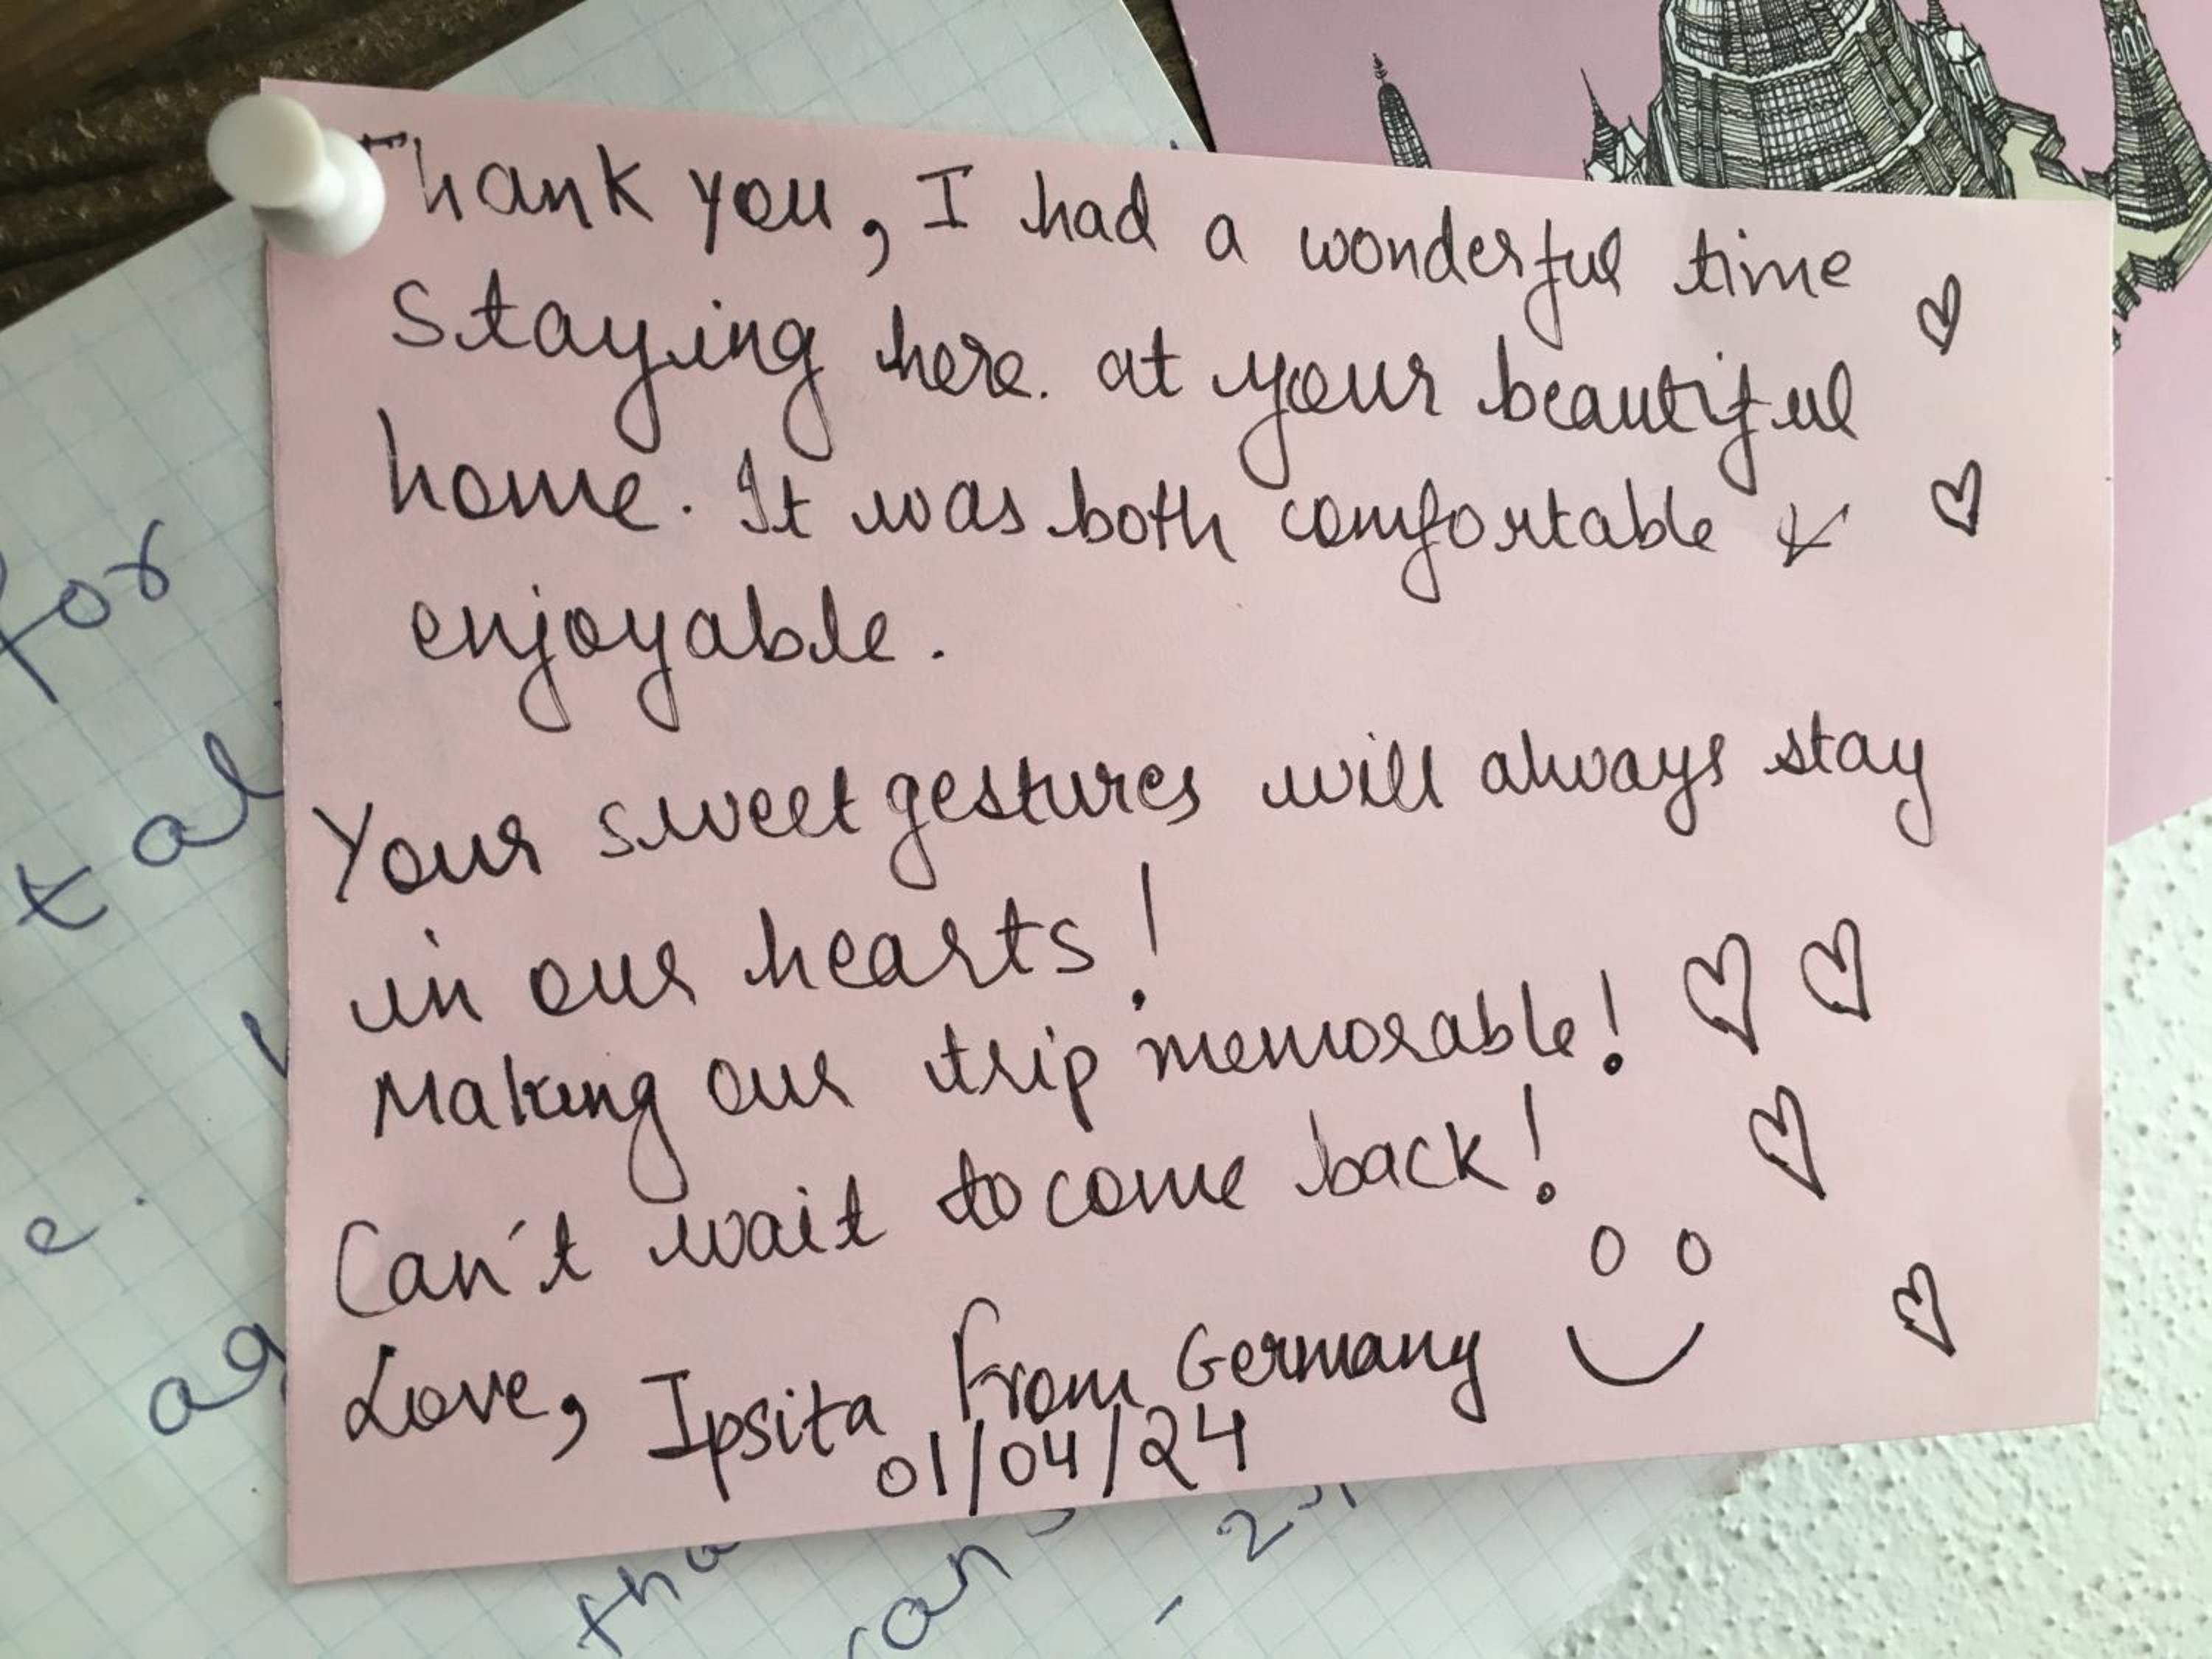 Thank you, I had a wonderful time
Staying here. at your beautiful
home. It was both comfortable &
enjoyable.
Your sweet gestures will always stay
in our hearts!
Making our trip memorable!
Can't wait to come back!
Love, Ipsita From Germany
01/04/24
for
e.